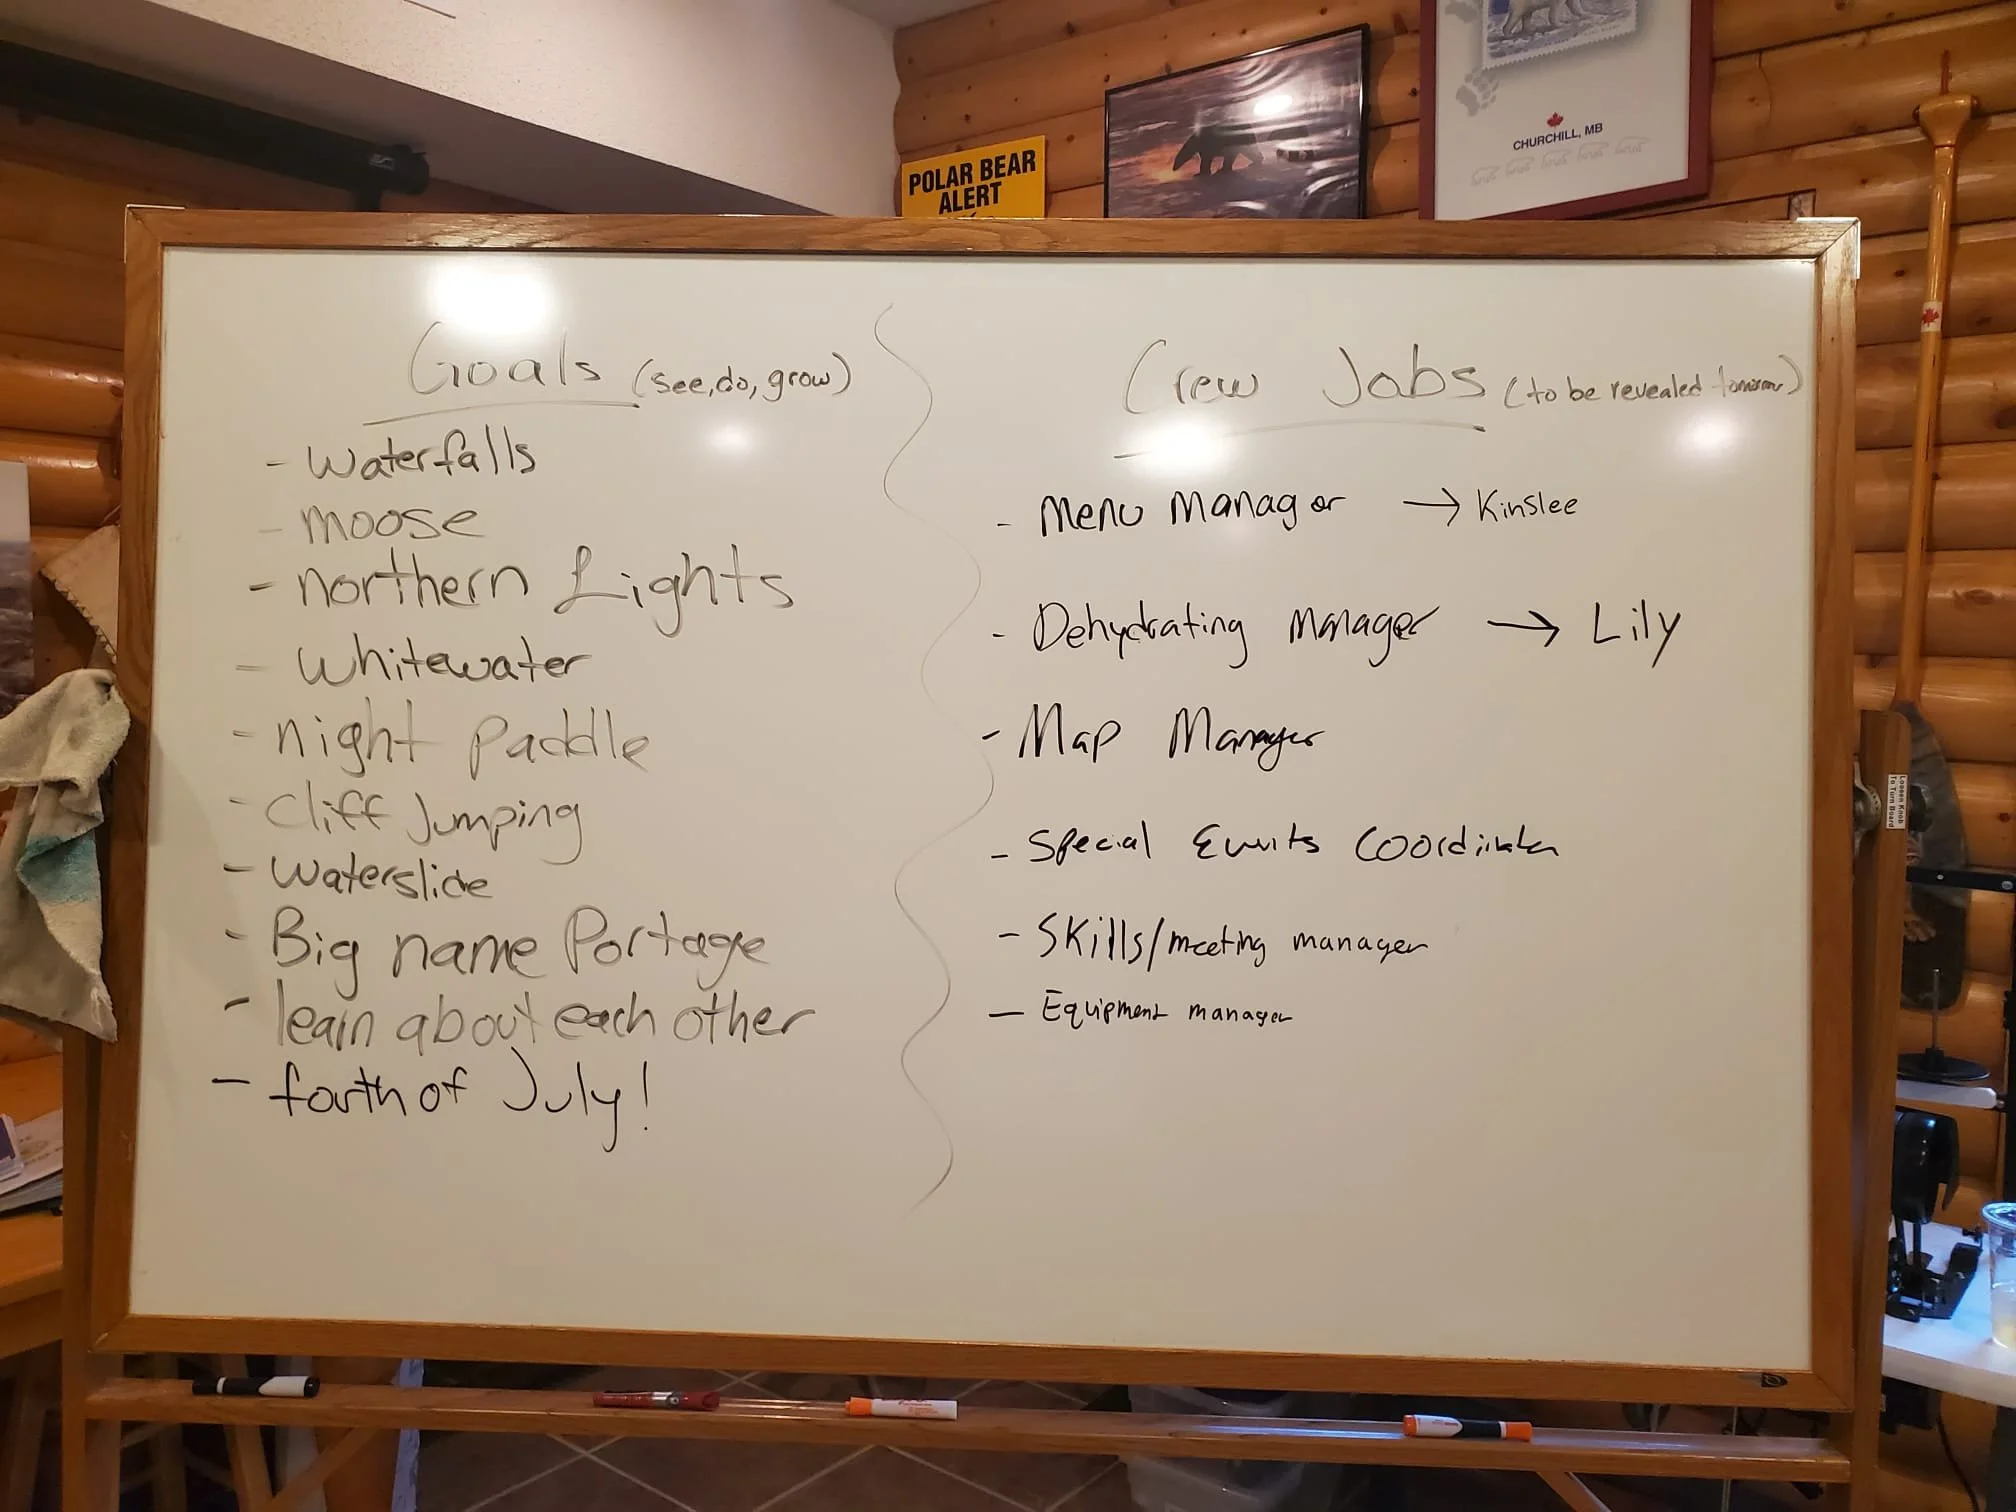 POLAR BEAR
ALERT
CHURCHILL, MB
Goals (see, do, grow)
- Waterfalls
- moose
- northern Lights
- Whitewater
- night paddle
- Cliff Jumping
- Waterslide
- Big name Portage
- learn about each other
- fourth of July!
Crew Jobs (to be revealed tomorrow)
- Menu Manager → Kinslee
- Dehydrating Manager → Lily
- Map Manager
- Special Events Coordinator
- Skills/meeting manager
- Equipment manager
Loosen Knob
To Turn Board